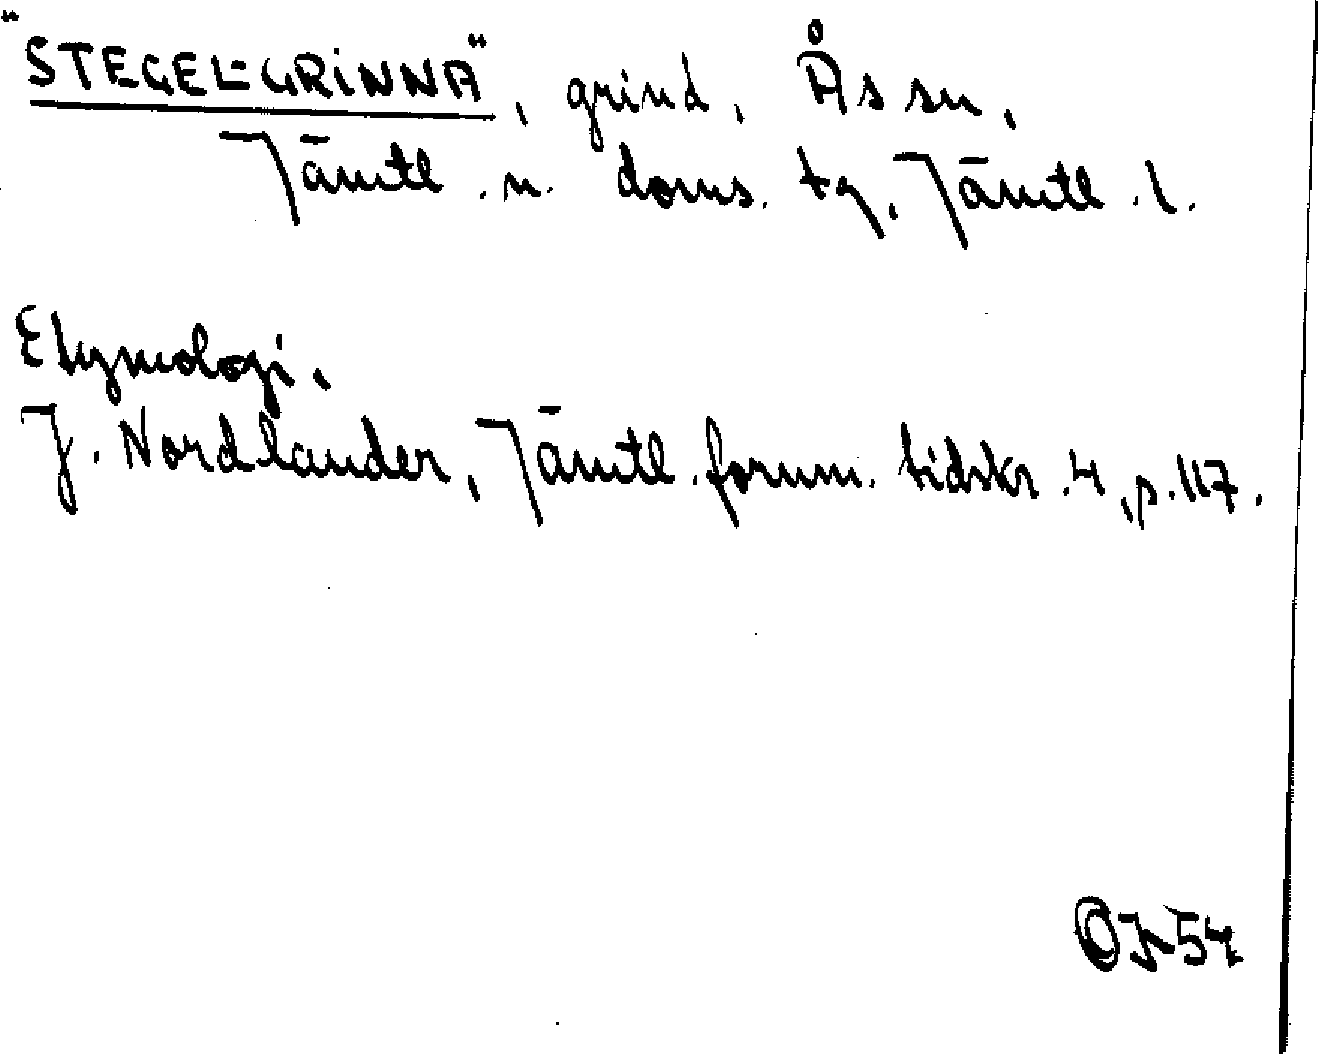 "STEGEL=GRINNA", grind, Ås sn,
Jämtl. n. doms. tg, Jämtl. l.
Etymologi.
J. Nordlander, Jämtl. fornm. tidskr. 4, p. 117.
OJ-54